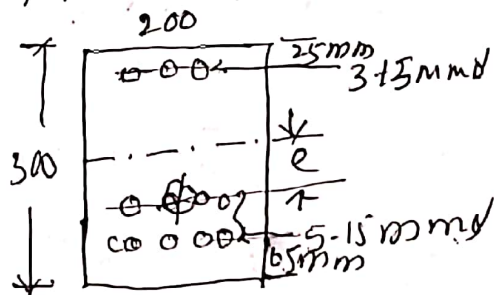 200
25mm
3 15mmφ
300
e
5-15mmφ
65mm